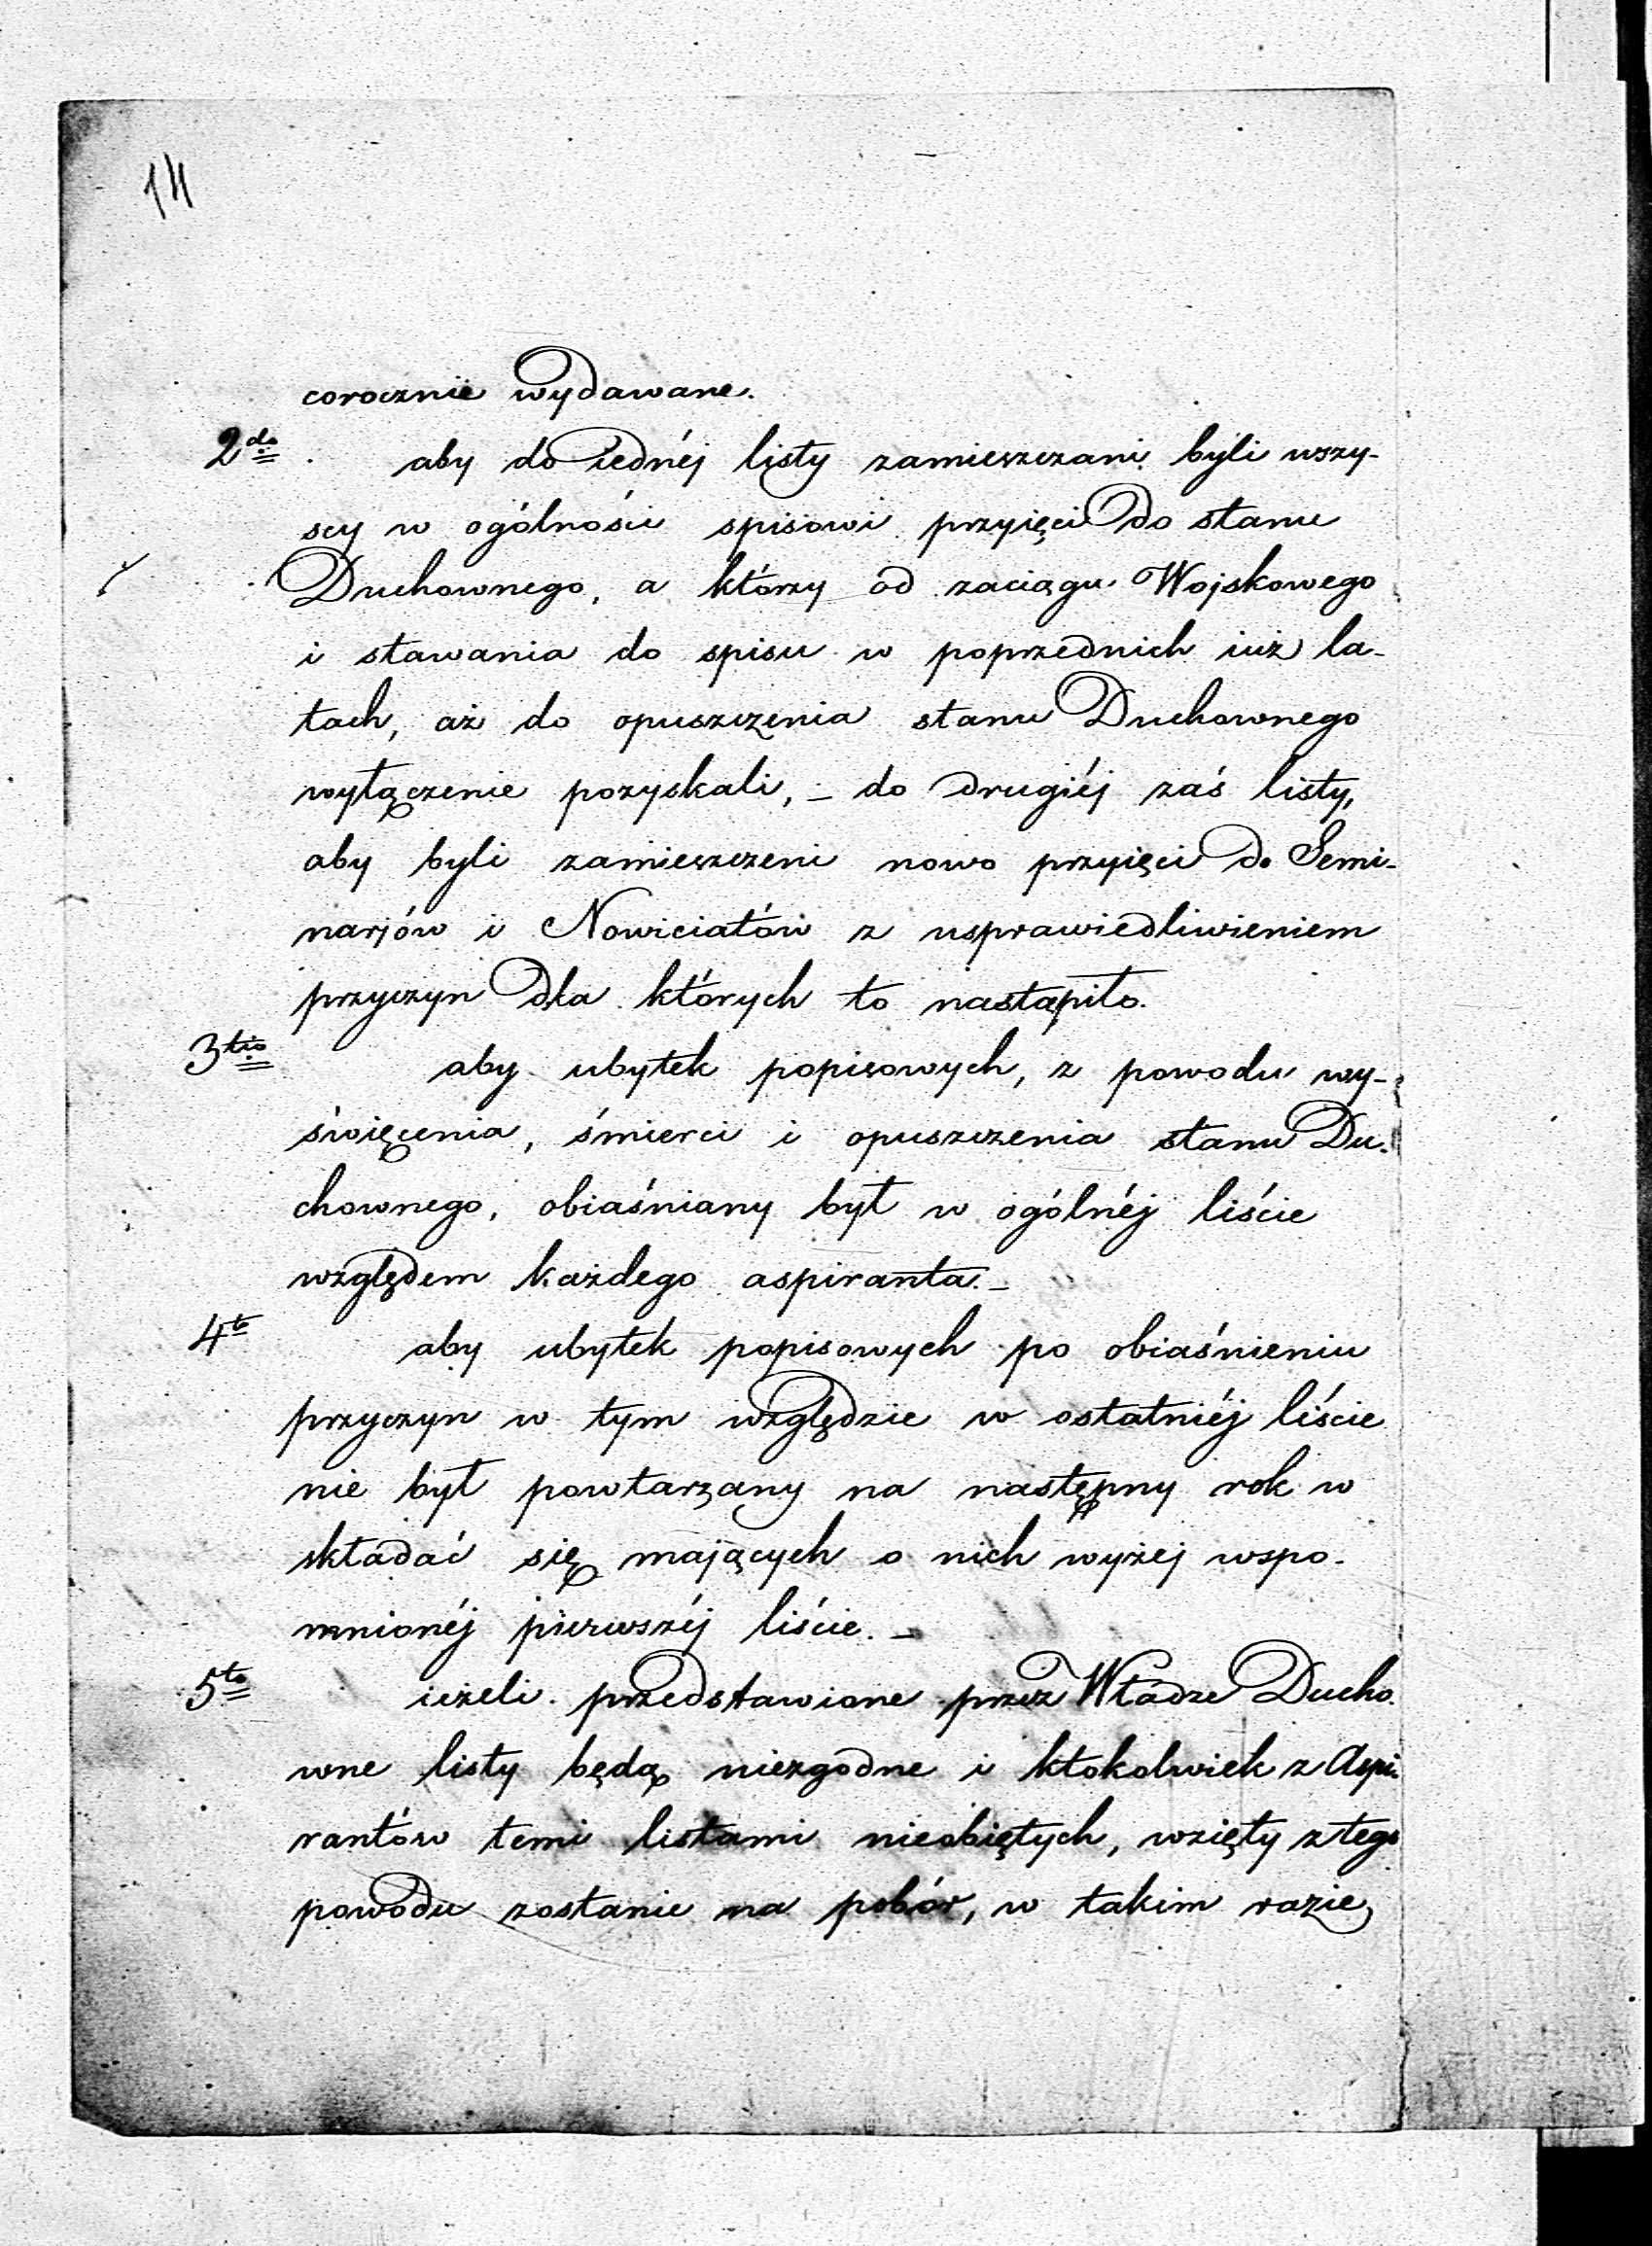 14
corocznie wydawane.
2do aby do iednéj listy zamieszczani byli wszy-
scy w ogólności spisowi przyięci do stanu
Duchownego, a którzy od zaciągu Wojskowego
i stawania do spisu w poprzednich iuż la-
tach, aż do opuszczenia stanu Duchownego
wyłączenie pozyskali, - do drugiéj zaś listy,
aby byli zamieszczeni nowo przyięci do Semi-
narjów i Nowiciatów z usprawiedliwieniem
przyczyn dla których to nastąpiło.
3tio aby ubytek popisowych, z powodu wy-
święcenia, śmierci i opuszczenia stanu Du-
chownego, obiaśniany był w ogólnéj liście
względem każdego aspiranta. -
4to aby ubytek popisowych po obiaśnieniu
przyczyn w tym względzie w ostatniéj liście
nie był powtarzany na następny rok w
składać się mających o nich wyżej wspo-
mnionéj pierwszéj liście. -
5to ieżeli przedstawione przez Władze Ducho-
wne listy będą niezgodne i ktokolwiek z Aspi-
rantów temi listami nieobiętych, wzięty z tego
powodu zostanie na pobór, w takim razie